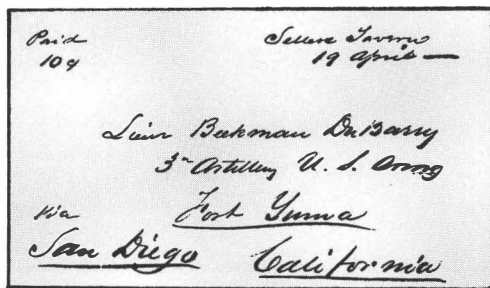 Paid
10¢
Sellers Tavern
19 April
Lieut Beekman DuBarry
3rd Artillery U. S. Army
Fort Yuma
via
San Diego California